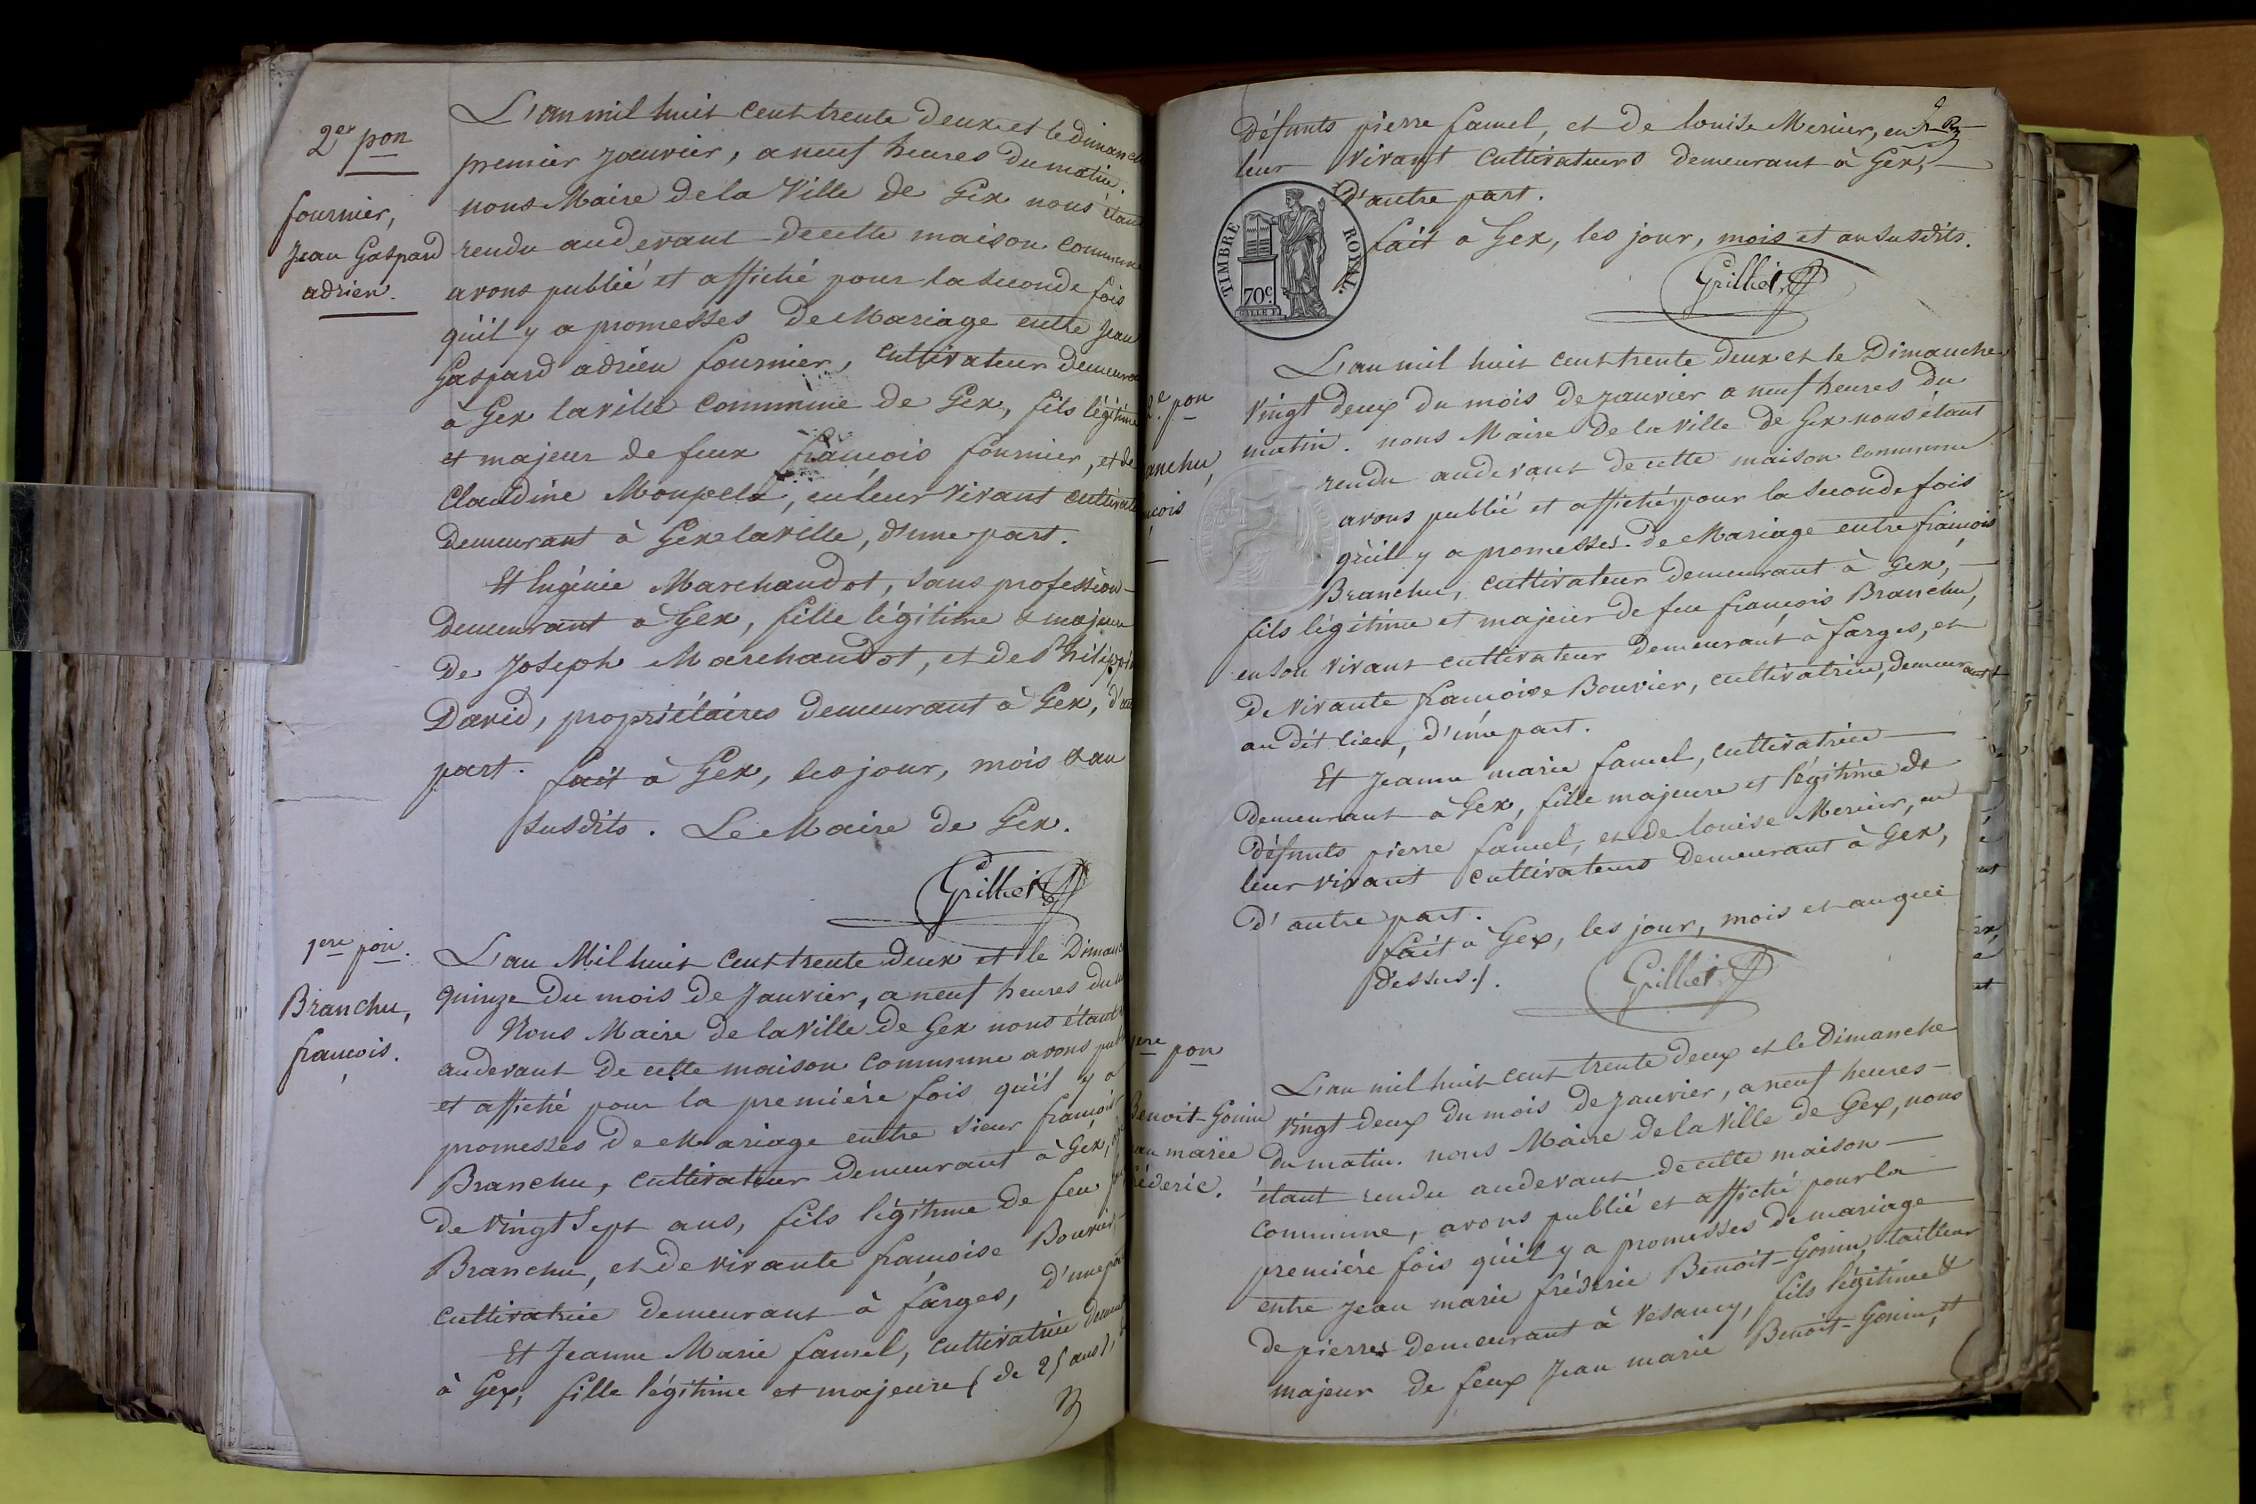 2.er pon
fournier,
Jean Gaspard
adrien.
L'an mil huit cent trente deux et le dimanche
premier janvier, a neuf heures du matin.
nous Maire de la Ville de Gex nous étant
rendu audevant de cette maison commune
avons publié et affiché pour la seconde fois
qu'il y a promesses de Mariage entre Jean
Gaspard adrien fournier, cultivateur demeurant
à Gex la ville commune de Gex, fils légitime
et majeur de feux françois fournier, et de
Claudine Monpela, en leur vivant cultivateurs
demeurant à Gex la ville, d'une part.
Et Eugénie Marchandot, sans profession
demeurant à Gex, fille légitime & majeure
de Joseph Marchandot, et de Philippine
David, propriétaires demeurant à Gex, d'autre
part.
fait à Gex, les jour, mois & an
susdits. Le Maire de Gex.
Grilliet
1ere pon.
Branchu,
françois.
L'an Mil huit cent trente deux et le Dimanche
quinze du mois de Janvier, a neuf heures du
Nous Maire de la Ville de Gex nous étant
audevant de cette maison commune avons publié
et affiché pour la première fois qu'il y a
promesses de Mariage entre sieur françois
Branchu, cultivateur demeurant à Gex,
de vingt sept ans, fils légitime de feu
Branchu, et de vivante françoise Bouvier,
cultivatrice demeurant à farges, d'une part
Et Jeanne Marie famel, cultivatrice demeurant
à Gex, fille légitime et majeure (de 25 ans),
défunts pierre famel, et de louise Mercier, en
leur vivant cultivateurs demeurant à Gex,
d'autre part.
fait à Gex, les jour, mois et an susdits.
TIMBRE ROYAL.
70c.
Grilliet
2.e pon
anchu,
nçois
L'an mil huit cent trente deux et le Dimanche
vingt deux du mois de janvier a neuf heures du
matin. nous Maire de la ville de Gex nous étant
rendu audevant de cette maison commune
avons publié et affiché pour la seconde fois
qu'il y a promesses de Mariage entre françois
Branchu, cultivateur demeurant à Gex,
fils légitime et majeur de feu françois Branchu,
en son vivant cultivateur demeurant à farges, et
de vivante françoise Bouvier, cultivatrice, demeurant
au dit lieu, d'une part.
Et Jeanne marie famel, cultivatrice
demeurant à Gex, fille majeure et légitime de
défunts pierre famel, et de louise Mercier, en
leur vivant cultivateurs demeurant à Gex,
d'autre part.
fait à Gex, les jour, mois et an que
dessus./.
Grilliet
1ere pon
Benoit-Gonin
an marie
éderic.
L'an mil huit cent trente deux et le Dimanche
vingt deux du mois de janvier, a neuf heures
du matin. nous Maire de la Ville de Gex, nous
étant rendu audevant de cette maison
commune, avons publié et affiché pour la
première fois qu'il y a promesses de mariage
entre Jean marie fréderic Benoit-Gonin, tailleur
de pierres demeurant à Vesancy, fils légitime &
majeur de feux Jean marie Benoit-Gonin, et